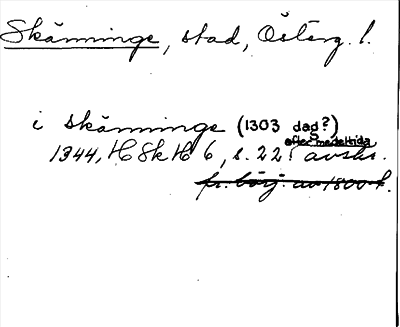 Skänninge, stad, Österg. l.
i skänninge (1303 dag?)
eftermedeltida
1344, HSkH 6, s. 22! avskr.
fr. börj. av 1800-t.